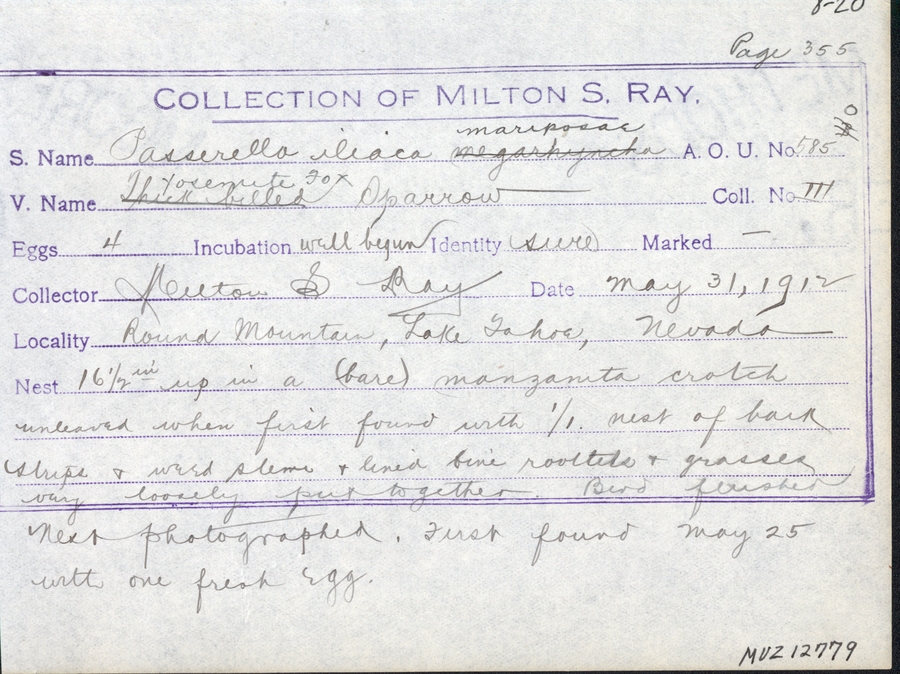 8-20
Page 355
COLLECTION OF MILTON S. RAY.
mariposae
S. Name Passerella iliaca megarhyncha A. O. U. No. 585
Yosemite Fox
V. Name Thick-billed Sparrow Coll. No. III
Eggs 4 Incubation well begun Identity sure Marked —
Collector Milton S Ray Date May 31, 1912
Locality Round Mountain, Lake Tahoe, Nevada
Nest 16 1/2 in up in a (bare) manzanita crotch
unleaved when first found with 1/1. nest of bark
strips & weed stems & lined fine rootlets & grasses
very loosely put together. Bird flushed
Nest photographed. First found May 25
with one fresh egg.
MVZ 12779